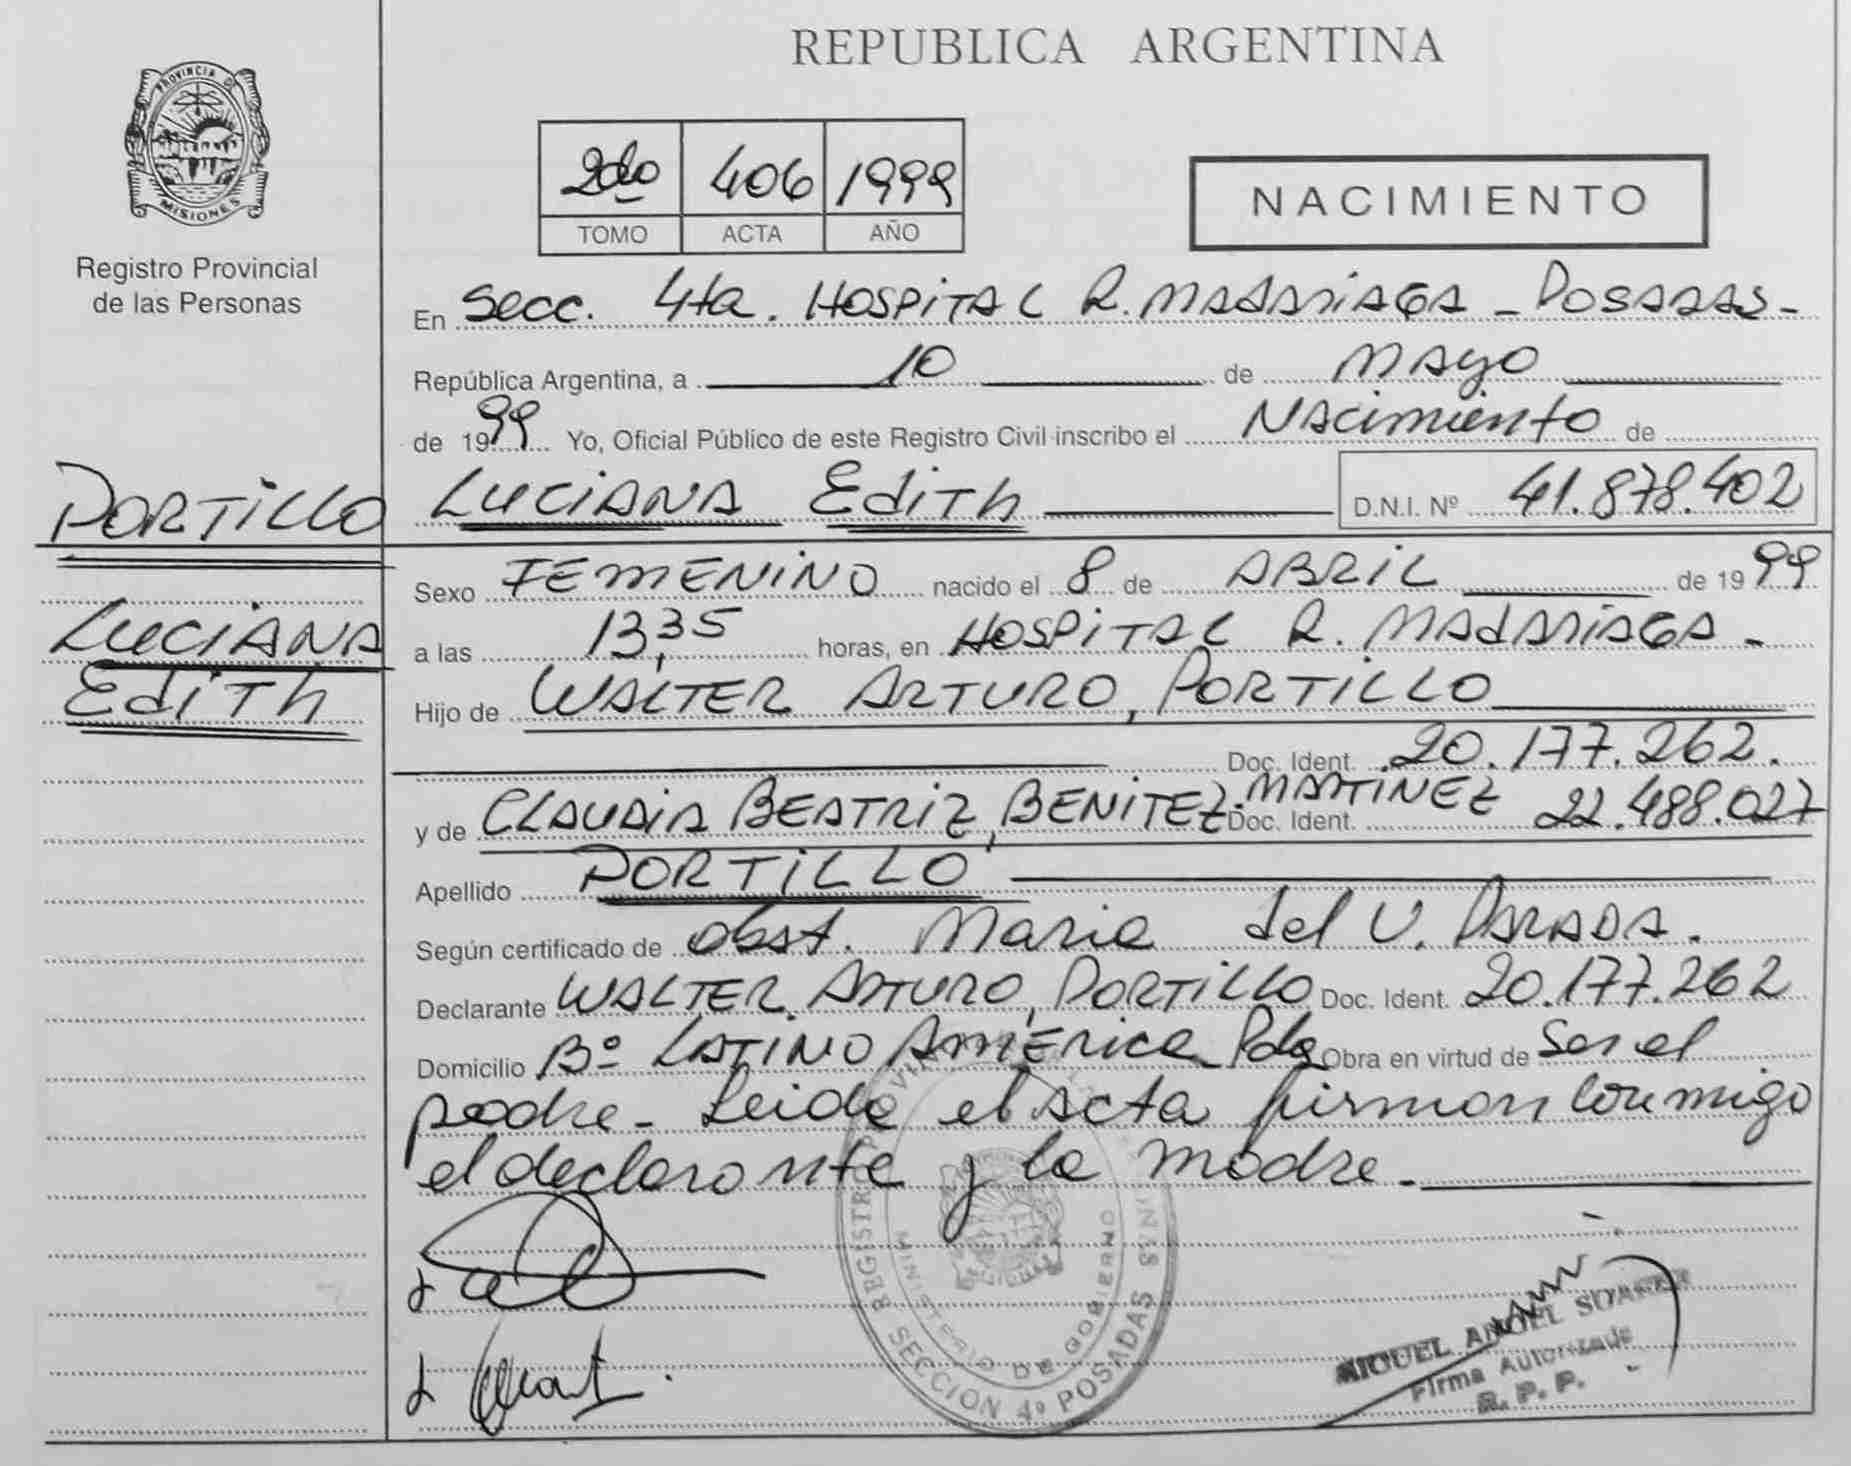 REPUBLICA ARGENTINA
PROVINCIA DE
MISIONES
Registro Provincial
de las Personas
2do 406 1999
TOMO ACTA AÑO
NACIMIENTO
En Secc. 4ta. HOSPITAL R. MADARIAGA - POSADAS -
República Argentina, a 10 de MAYO
de 1999 Yo, Oficial Público de este Registro Civil inscribo el Nacimiento de
PORTILLO LUCIANA Edith D.N.I. Nº 41.878.402
LUCIANA
Edith
Sexo FEMENINO nacido el 8 de ABRIL de 1999
a las 13,35 horas, en HOSPITAL R. MADARIAGA -
Hijo de WALTER ARTURO, PORTILLO
Doc. Ident. 20.177.262.
y de CLAUDIA BEATRIZ, BENITEZ MARTINEZ Doc. Ident. 22.488.027
Apellido PORTILLO
Según certificado de obst. Maria del V. PARADA.
Declarante WALTER ARTURO, PORTILLO Doc. Ident. 20.177.262
Domicilio Bº LATINO AMERICA Pdas Obra en virtud de Ser el
padre - Leida el acta firman conmigo
el declarante y la madre.
REGISTRO PROVINCIAL DE LAS PERSONAS
MINISTERIO DE GOBIERNO
SECCION 4º POSADAS
MIGUEL ANGEL SUAREZ
Firma Autorizada
R. P. P.